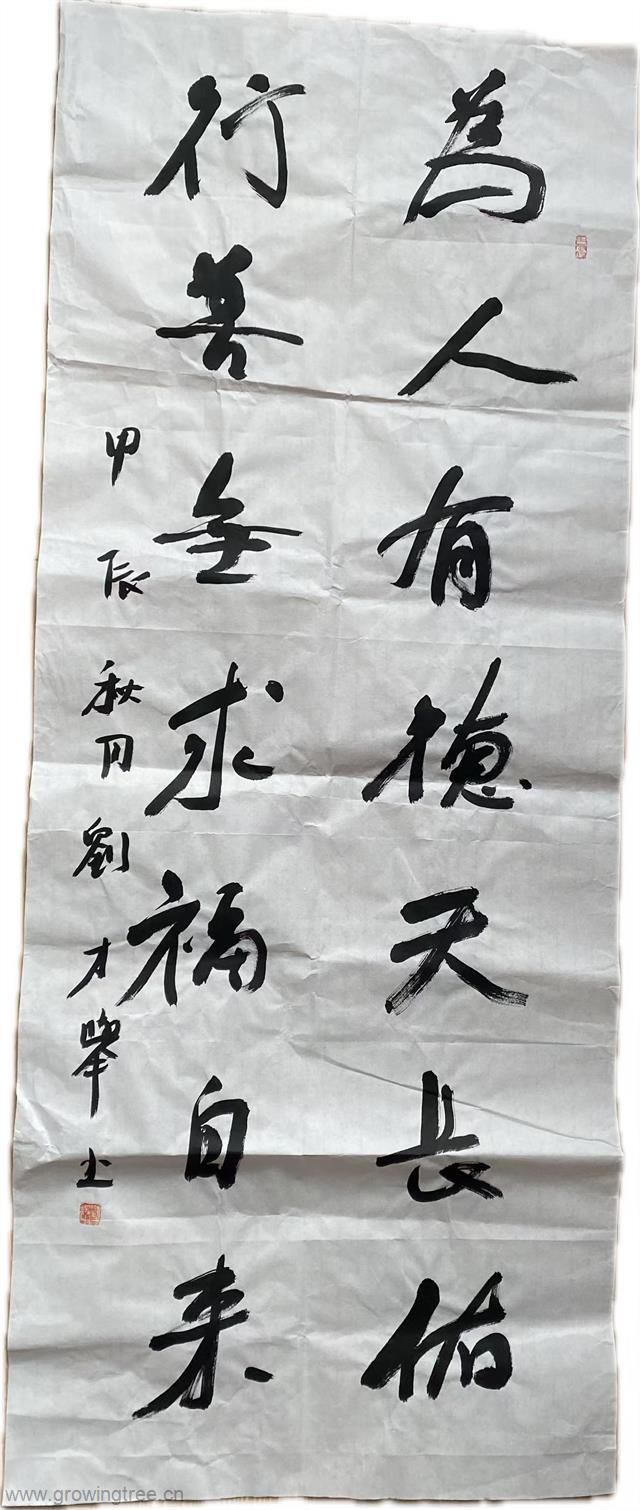 為人有德天長佑
行善無求福自来
甲辰秋月劉才舉书
www.growingtree.cn